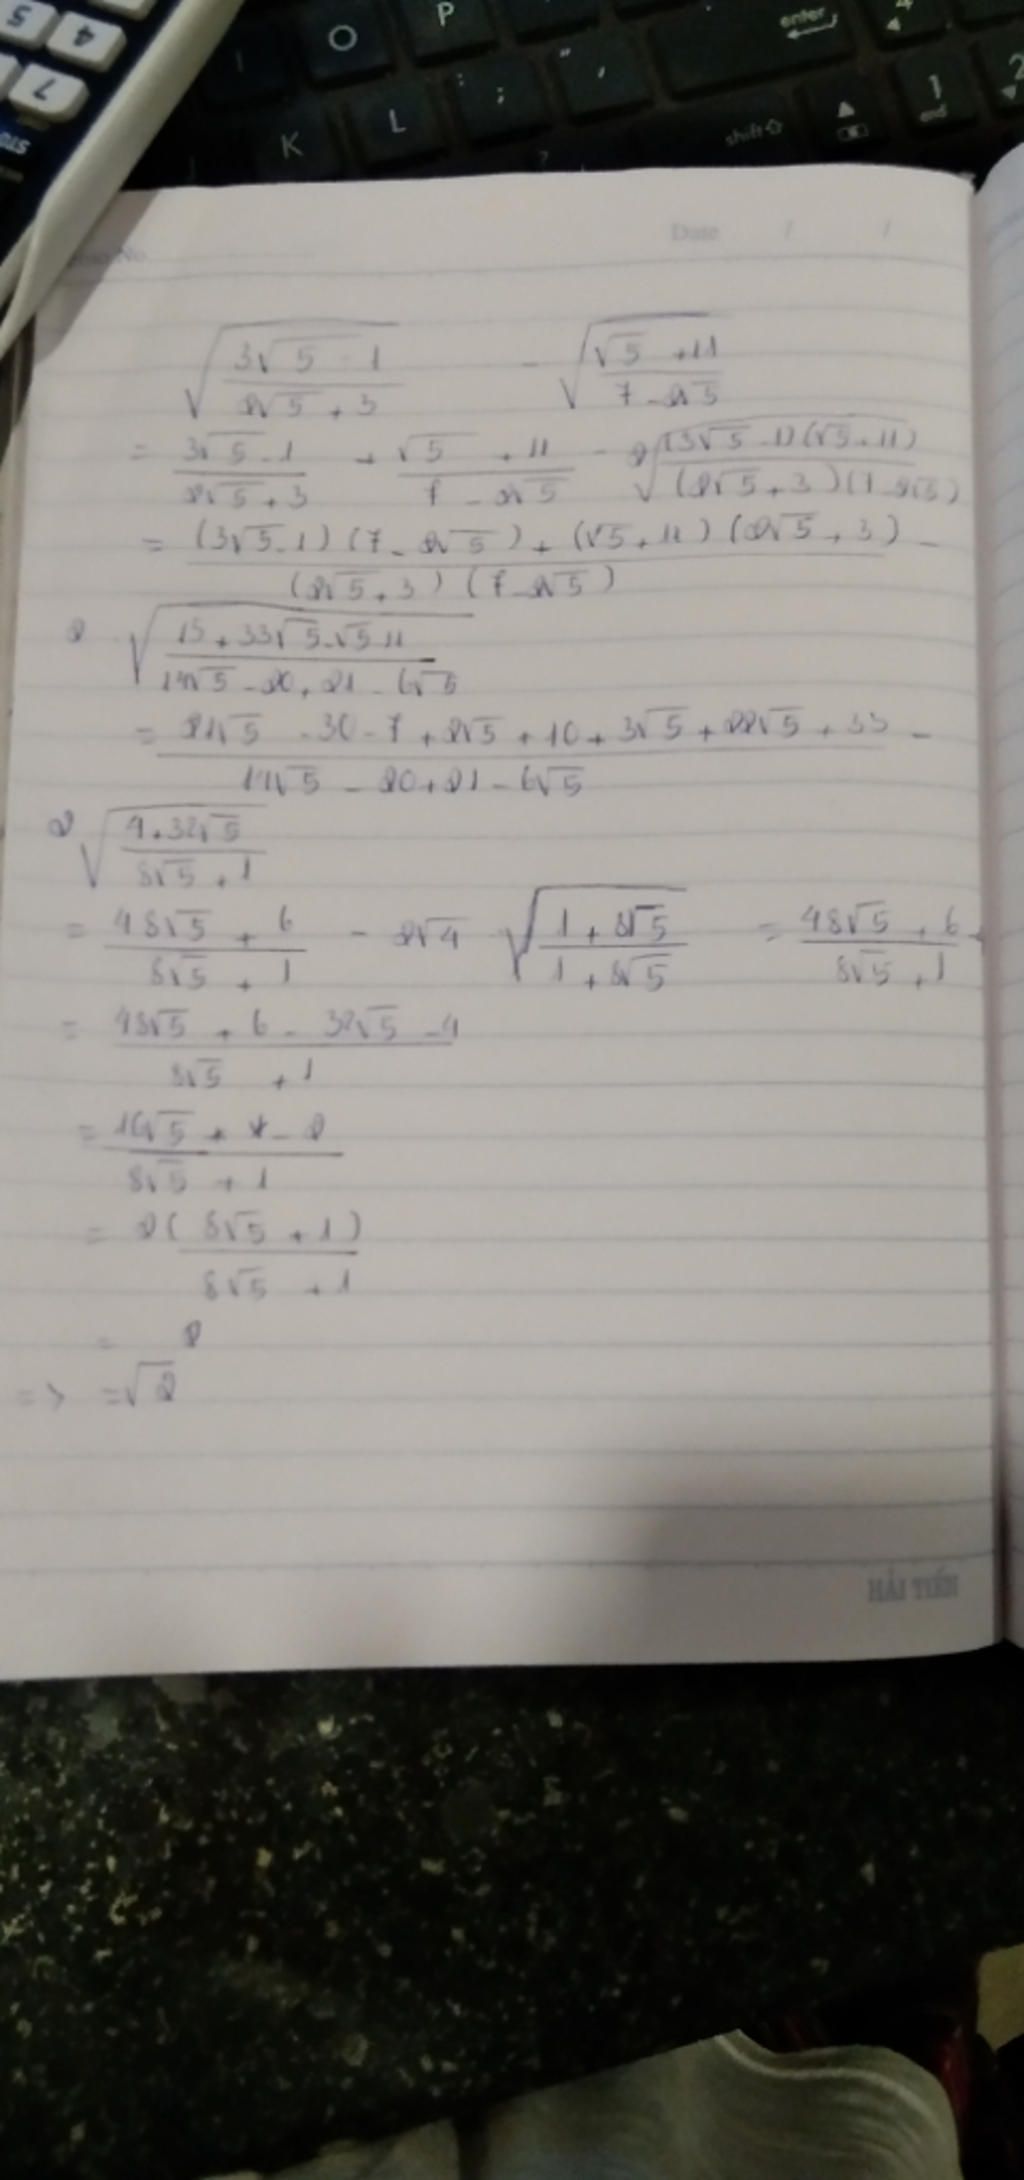 5 4
7
O P enter 4
K L : ; " , shift 1 end 2
?
Date / /
No
√((3√5 - 1)/(2√5 + 3)) - √((√5 + 11)/(7 - 2√5))
= (3√5 - 1)/(2√5 + 3) + (√5 + 11)/(7 - 2√5) - 2√((3√5 - 1)(√5 + 11)/((2√5 + 3)(7 - 2√5)))
= ((3√5 - 1)(7 - 2√5) + (√5 + 11)(2√5 + 3))/((2√5 + 3)(7 - 2√5)) -
2 √((15 + 33√5 - √5 - 11)/(14√5 - 20 + 21 - 6√5))
= (21√5 - 30 - 7 + 2√5 + 10 + 3√5 + 22√5 + 33)/(14√5 - 20 + 21 - 6√5) -
2√((4 + 32√5)/(8√5 + 1))
= (48√5 + 6)/(8√5 + 1) - 2√4 √((1 + 8√5)/(1 + 8√5)) = (48√5 + 6)/(8√5 + 1) -
= (48√5 + 6 - 32√5 - 4)/(8√5 + 1)
= (16√5 + 2)/(8√5 + 1)
= 2(8√5 + 1)/(8√5 + 1)
= 2
=> = √2
HẢI TIẾN